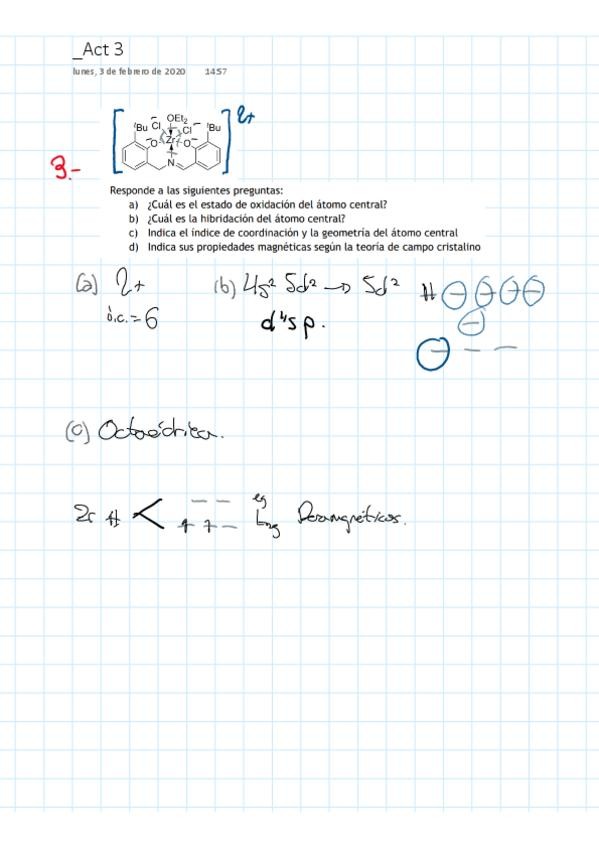 _Act 3
lunes, 3 de febrero de 2020 14:57
OEt2
tBu Cl Cl tBu 2+
O Zr O
N
3.-
Responde a las siguientes preguntas:
a) ¿Cuál es el estado de oxidación del átomo central?
b) ¿Cuál es la hibridación del átomo central?
c) Indica el índice de coordinación y la geometría del átomo central
d) Indica sus propiedades magnéticas según la teoría de campo cristalino
(a) 2+ (b) 4s² 5d² → 5d²
i.c. = 6 d⁴sp.
(c) Octaédrica.
eg